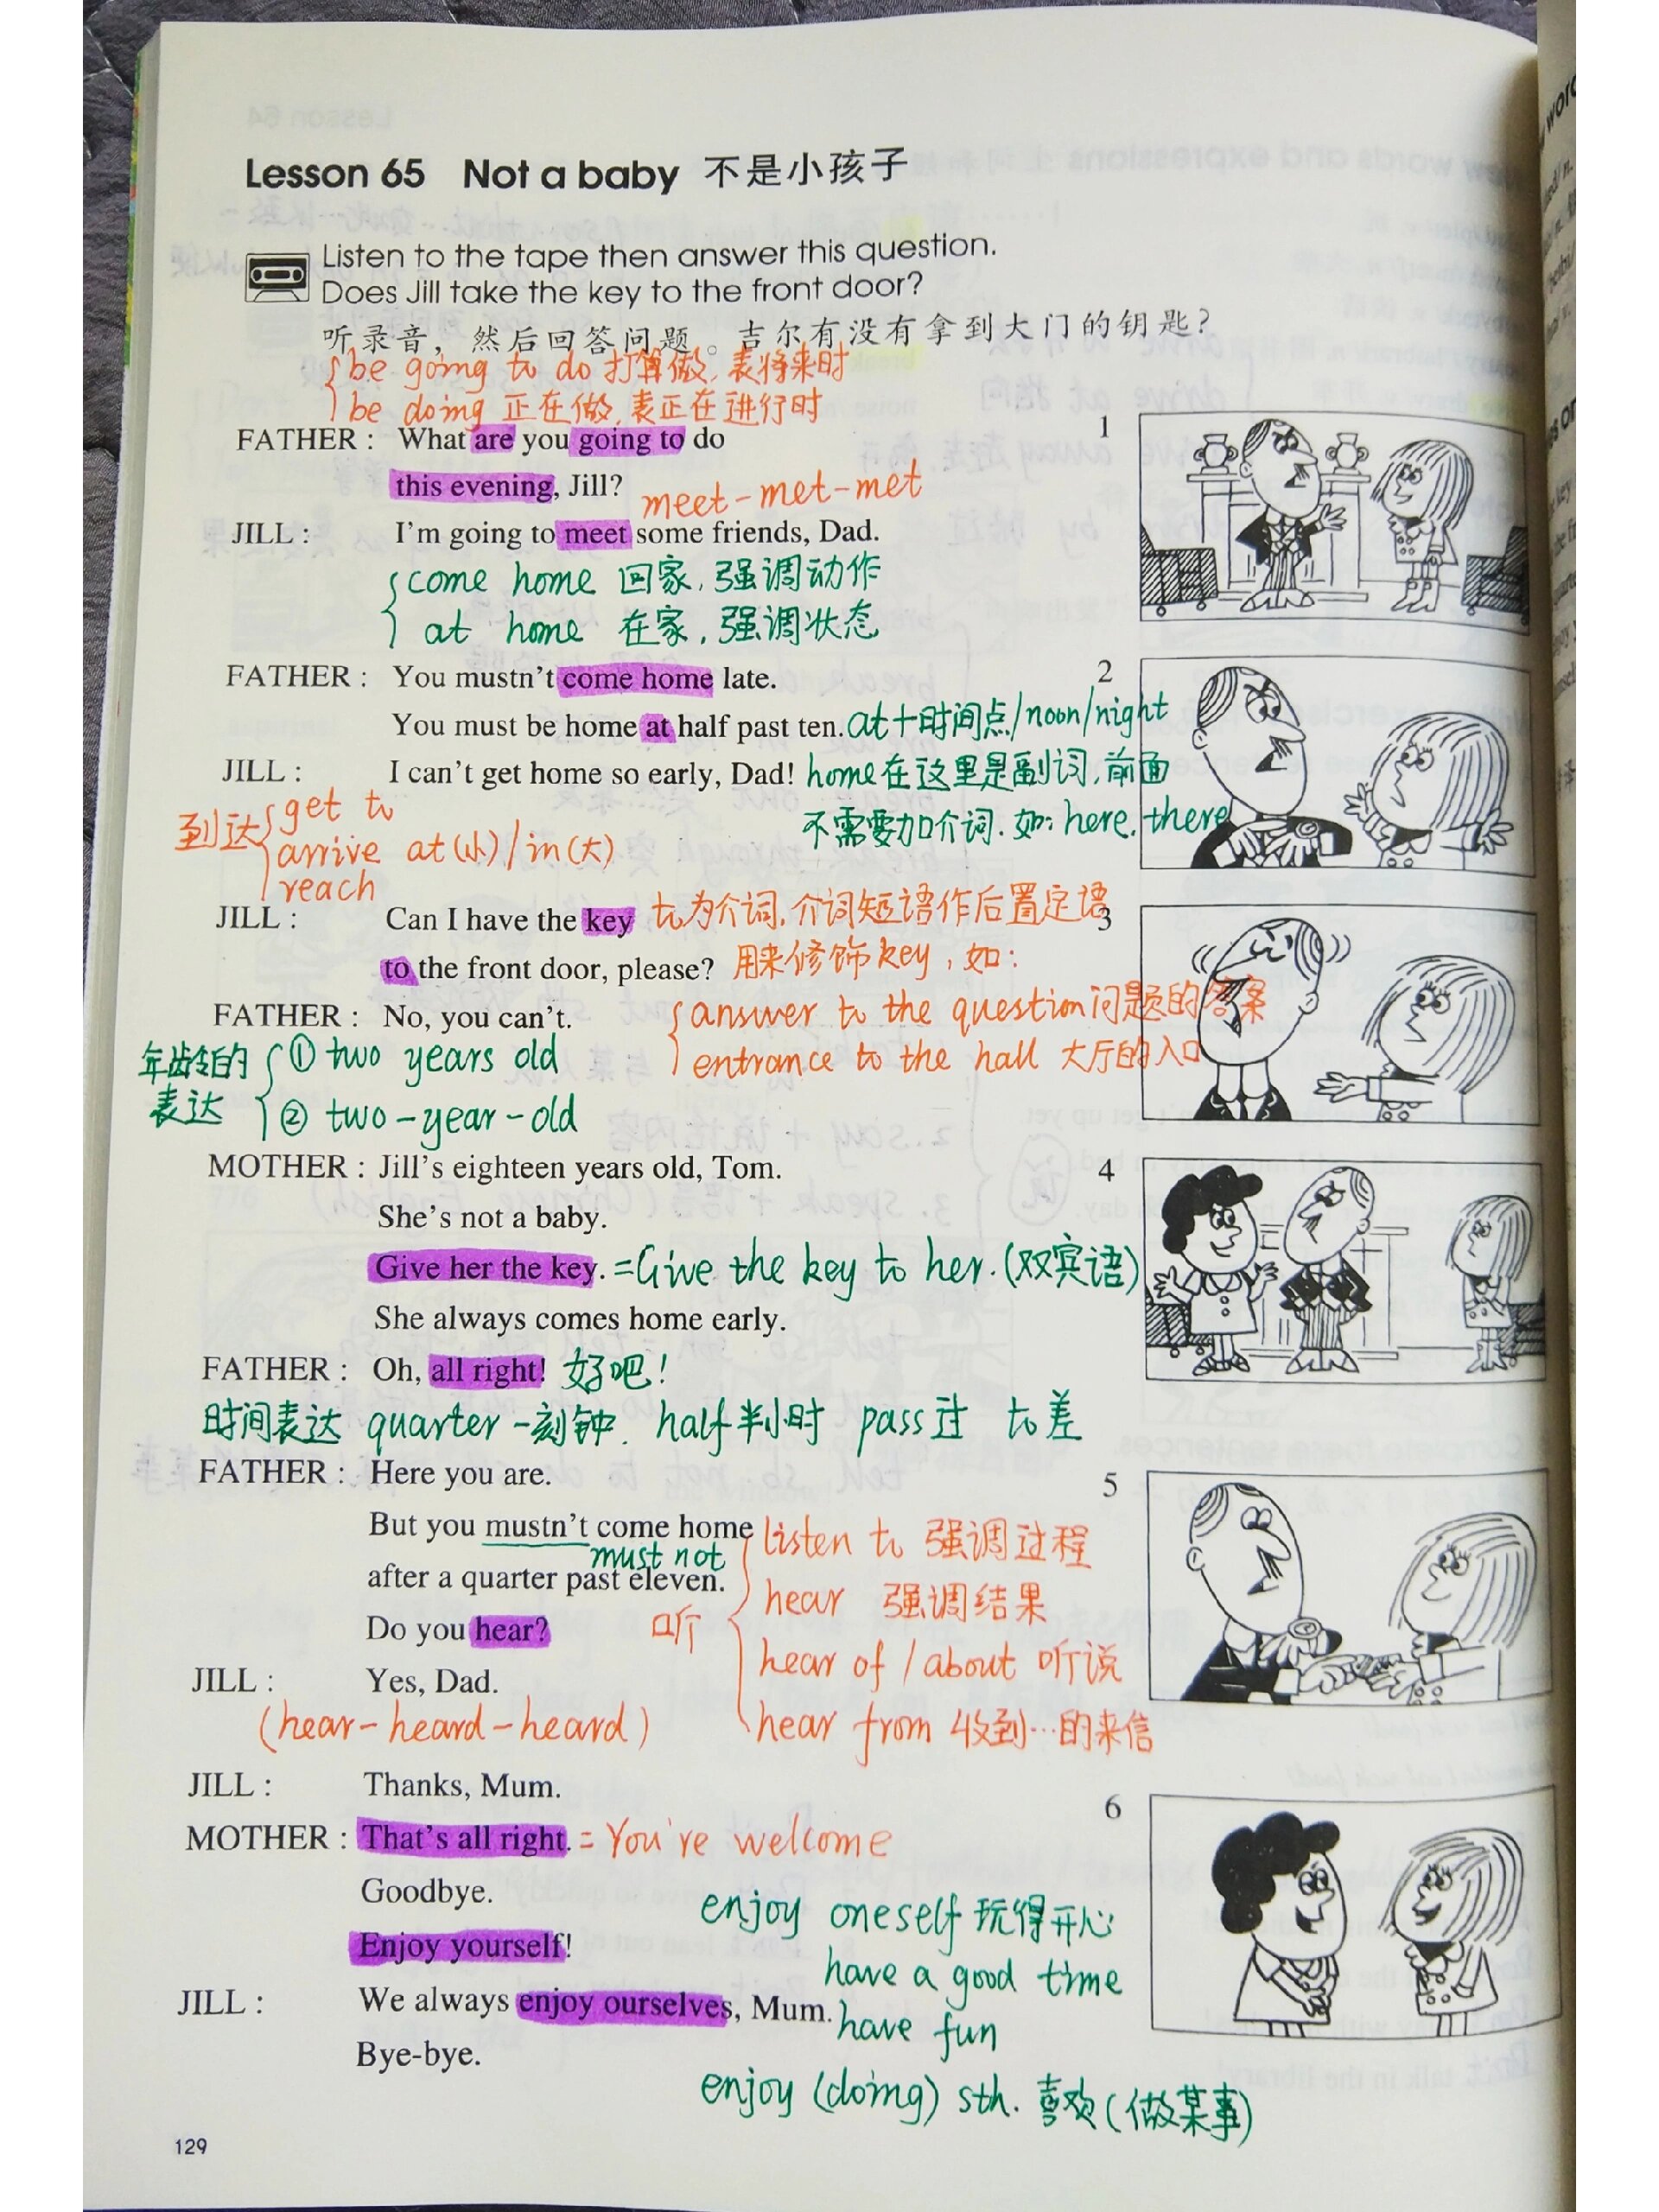 Lesson 65 Not a baby 不是小孩子
Listen to the tape then answer this question.
Does Jill take the key to the front door?
听录音，然后回答问题。吉尔有没有拿到大门的钥匙？
be going to do 打算做，表将来时
be doing 正在做，表正在进行时
FATHER : What are you going to do 1
this evening, Jill? meet-met-met
JILL : I'm going to meet some friends, Dad.
come home 回家，强调动作
at home 在家，强调状态
FATHER : You mustn't come home late. 2
You must be home at half past ten. at+时间点/noon/night
JILL : I can't get home so early, Dad! home在这里是副词，前面
不需要加介词. 如: here, there
到达 get to
arrive at(小)/in(大)
reach
JILL : Can I have the key to为介词，介词短语作后置定语 3
to the front door, please? 用来修饰key，如:
FATHER : No, you can't. answer to the question问题的答案
entrance to the hall 大厅的入口
年龄的 ① two years old
表达 ② two-year-old
MOTHER : Jill's eighteen years old, Tom. 4
She's not a baby.
Give her the key. =Give the key to her. (双宾语)
She always comes home early.
FATHER : Oh, all right! 好吧!
时间表达 quarter 一刻钟. half半小时 pass过 to差
FATHER : Here you are. 5
But you mustn't come home listen to 强调过程
must not
after a quarter past eleven. hear 强调结果
Do you hear? 听 hear of / about 听说
JILL : Yes, Dad.
(hear-heard-heard) hear from 收到…的来信
JILL : Thanks, Mum. 6
MOTHER : That's all right. = You're welcome
Goodbye. enjoy oneself 玩得开心
Enjoy yourself! have a good time
JILL : We always enjoy ourselves, Mum. have fun
Bye-bye.
enjoy (doing) sth. 喜欢(做某事)
129